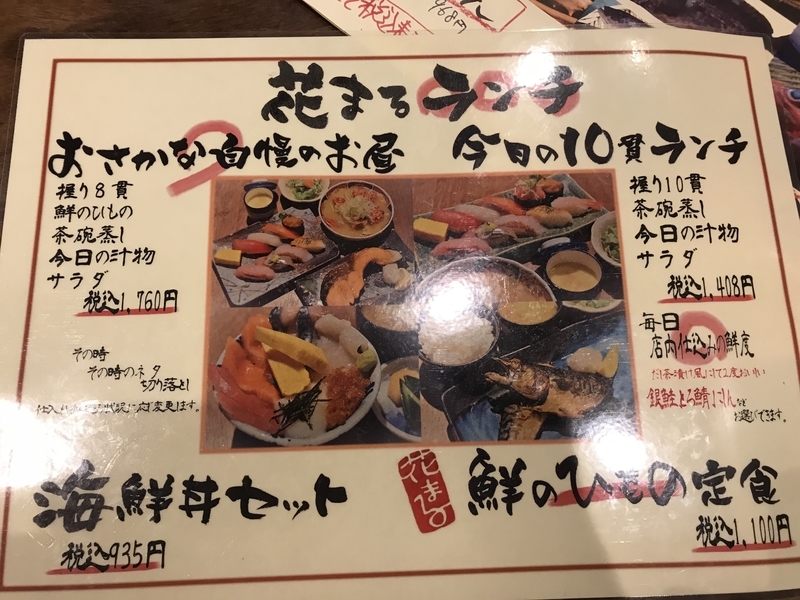 468円
花まるランチ
おさかな自慢のお昼
握り8貫
鮮のひもの
茶碗蒸し
今日の汁物
サラダ
税込1,760円
今日の10貫ランチ
握り10貫
茶碗蒸し
今日の汁物
サラダ
税込1,408円
その時
その時のネタ
切り落とし
変更します。
海鮮丼セット
税込935円
毎日
店内仕込みの鮮度
だし茶漬け風にして2度おいしい
銀鮭とろ鯖にしんなど
お選びできます。
花まる
鮮のひもの定食
税込1,100円